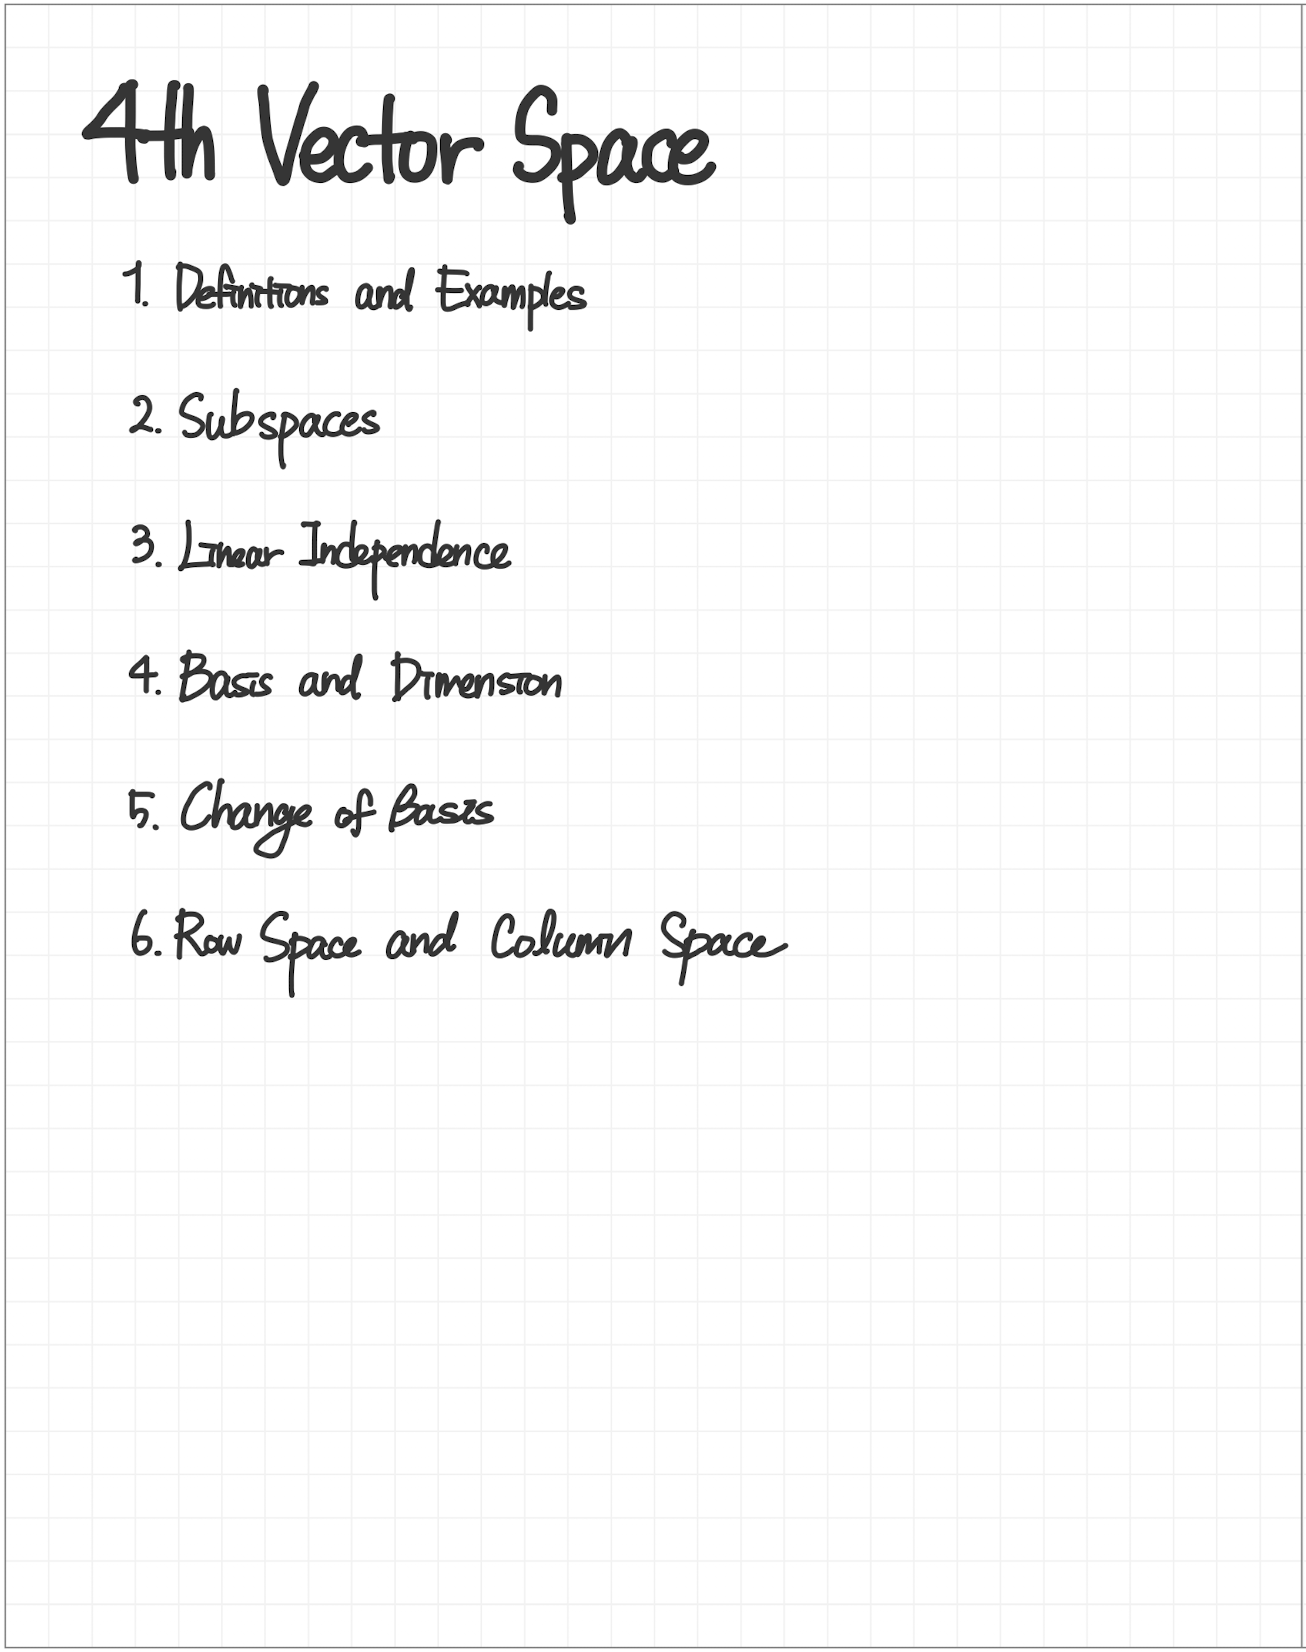 4th Vector Space
1. Definitions and Examples
2. Subspaces
3. Linear Independence
4. Basis and Dimension
5. Change of Basis
6. Row Space and Column Space